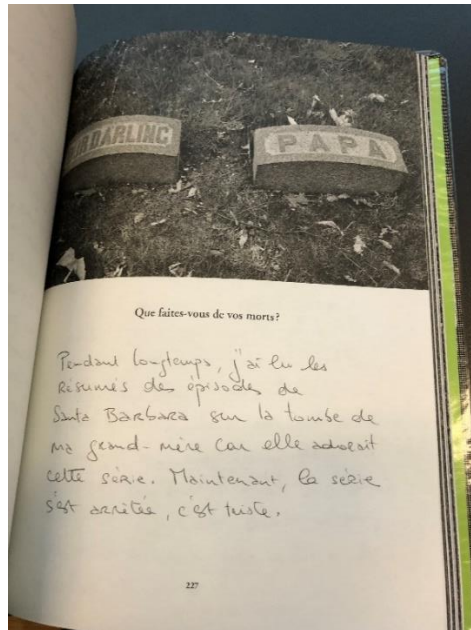 DARLING
PAPA
Que faites-vous de vos morts?
Pendant longtemps, j'ai lu les
Résumés des épisodes de
Santa Barbara sur la tombe de
ma grand-mère car elle adorait
cette série. Maintenant, la série
s'est arrêtée, c'est triste.
227